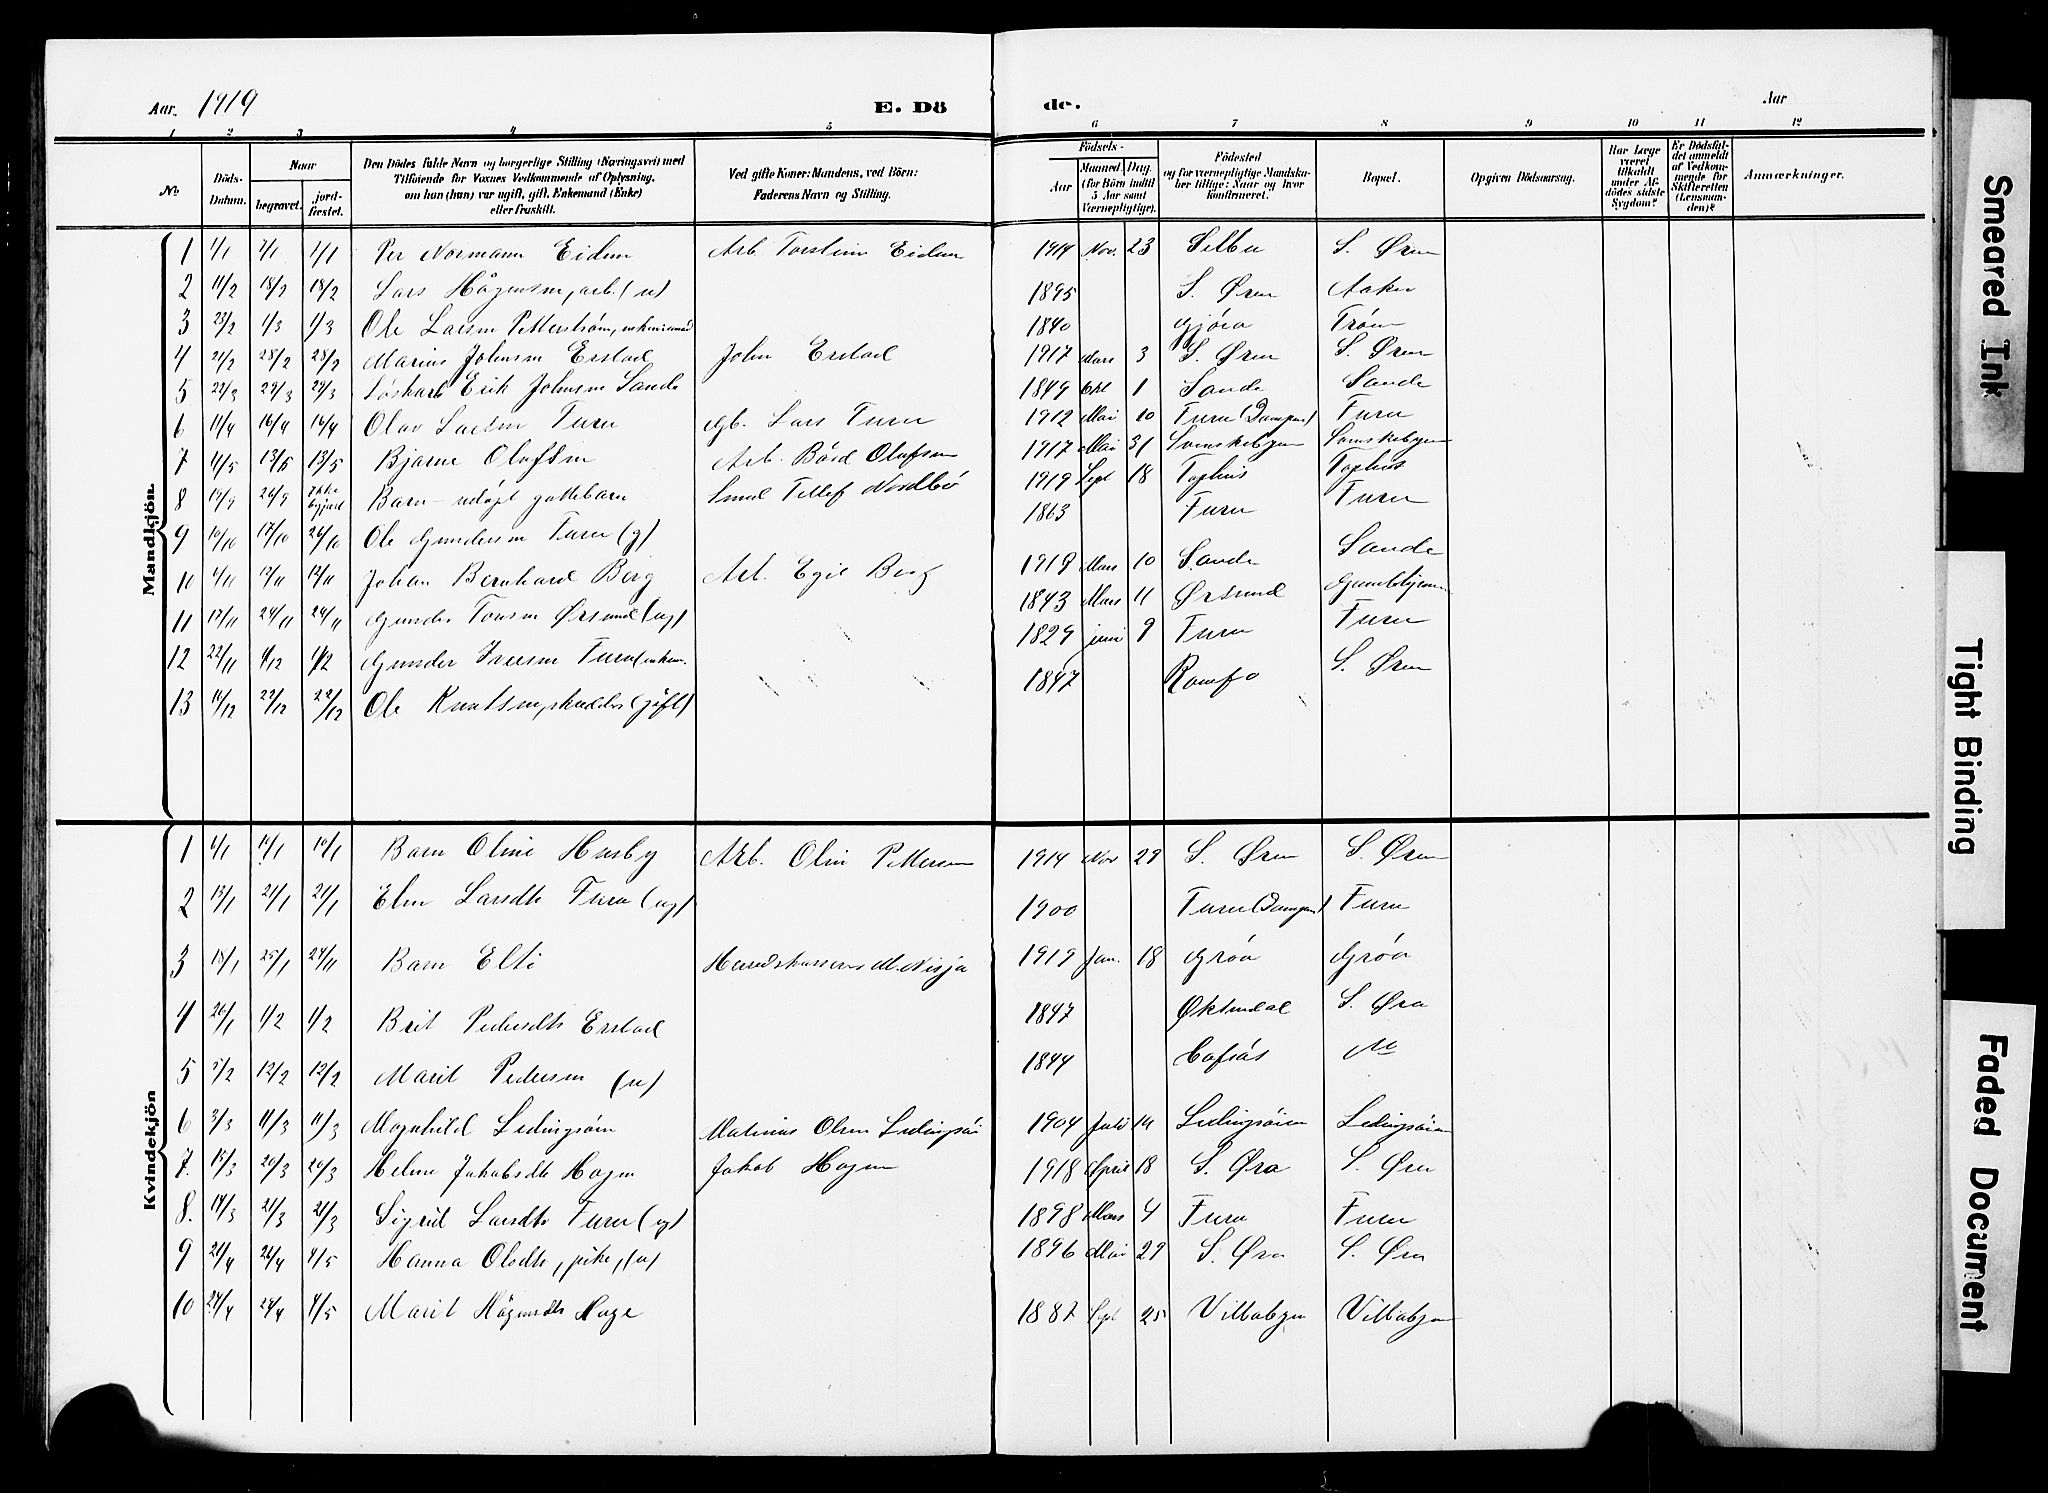 Aar. 1919
E. Dö
de.
Aar
1 2 3 4 5 6 7 8 9 10 11 12
No.
Döds-Datum.
Naar
begravet.
jord-fæstet.
Den Dödes fulde Navn og borgerlige Stilling (Næringsvei) med
Tilföiende for Voxnes Vedkommende af Oplysning,
om han (hun) var ugift, gift, Enkemand (Enke)
eller fraskilt.
Ved gifte Koner: Mandens, ved Börn:
Faderens Navn og Stilling.
Födsels-
Aar
Maaned. Dag.
(for Börn indtil
5 Aar samt
Værnepligtige).
Födested
og for værnepligtige Mandska-
ber tillige: Naar og hvor
konfirmeret.
Bopæl.
Opgiven Dödsaarsag.
Har Læge
været
tilkaldt
under Af-
dödes sidste
Sygdom?
Er Dödsfal-
det anmeldt
af Vedkom-
mende for
Skifteretten
(Lensman-
den)?
Anmærkninger.
Mandkjön.
1 Per Normann Eidem Arb. Torstein Eidem 1914 Nov. 23 Selbu S. Øren
2 11/2 18/2 18/2 Lars Hågensen, arb. (u) 1895 S. Øren Aaker
3 23/2 1/3 1/3 Ole Larsen 1840 Gjöra Tröen
4 21/2 28/2 28/2 Marius Johnsen Erstad John Erstad 1917 Mars 3 S. Øren S. Øren
5 22/3 29/3 29/3 Erik Johnsen Sande 1849 Okt 1 Sande Sande
6 11/4 16/4 16/4 Olav Larsen Furu Gb. Lars Furu 1912 Mai 10 Furu Furu
7 4/5 13/5 13/5 Bjarne Olafsen Arb. Bård Olafsen 1917 Mai 31 Svenskebyen Svenskebyen
8 19/9 26/9 ikke Barn - udöpt guttebarn Smed Tellef Nordbö 1919 Sept 18 Tophus Tophus
9 10/10 17/10 26/10 Ole Gundersen Furu (g) 1863 Furu Furu
10 4/11 12/11 12/11 Johan Bernhard Berg Arb. Egil Berg 1919 Mars 10 Sande Sande
11 17/11 24/11 24/11 Gunder Tonsen Ørsund (ug) 1843 Mars 11 Ørsund
12 22/11 1/12 1/12 Gunder Furu 1829 juni 9 Furu Furu
13 14/12 22/12 22/12 Ole Knutsen, (gift) 1847 Romfo S. Øren
Kvindekjön
1 Barn Oline Husby Arb. Olin Pettersen 1914 Nov 29 S. Øren S. Øren
2 13/1 21/1 21/1 Elen Larsdtr Furu (ug) 1900 Furu Furu
3 18/1 25/1 Barn Elti M. Nisja 1919 Jan. 18 Gröa Gröa
4 26/1 1/2 1/2 Brit Pedersdtr Erstad 1847 Øksendal S. Øra
5 5/2 12/2 12/2 Marit Pedersen (u) 1844
6 3/3 11/3 11/3 Magnhild Ledingsöen Mathius Olsen 1904 Juli 14 Ledingsöien Ledingsöien
7. 13/3 20/3 20/3 Helene Jakobsdtr Hagen Jakob Hagen 1918 April 18 S. Øra S. Øren
8. 14/3 21/3 21/3 Sigrid Larsdtr Furu (ug) 1898 Mars 4 Furu Furu
9 21/4 26/4 4/5 Hanna Olsdtr, pike, (u) 1896 Mai 29 S. Øra S. Øra
10 24/4 29/4 4/5 Marit Hågensdtr Hage 1887 Sept 25 Villabyen Villabyen
Smeared Ink
Tight Binding
Faded Document